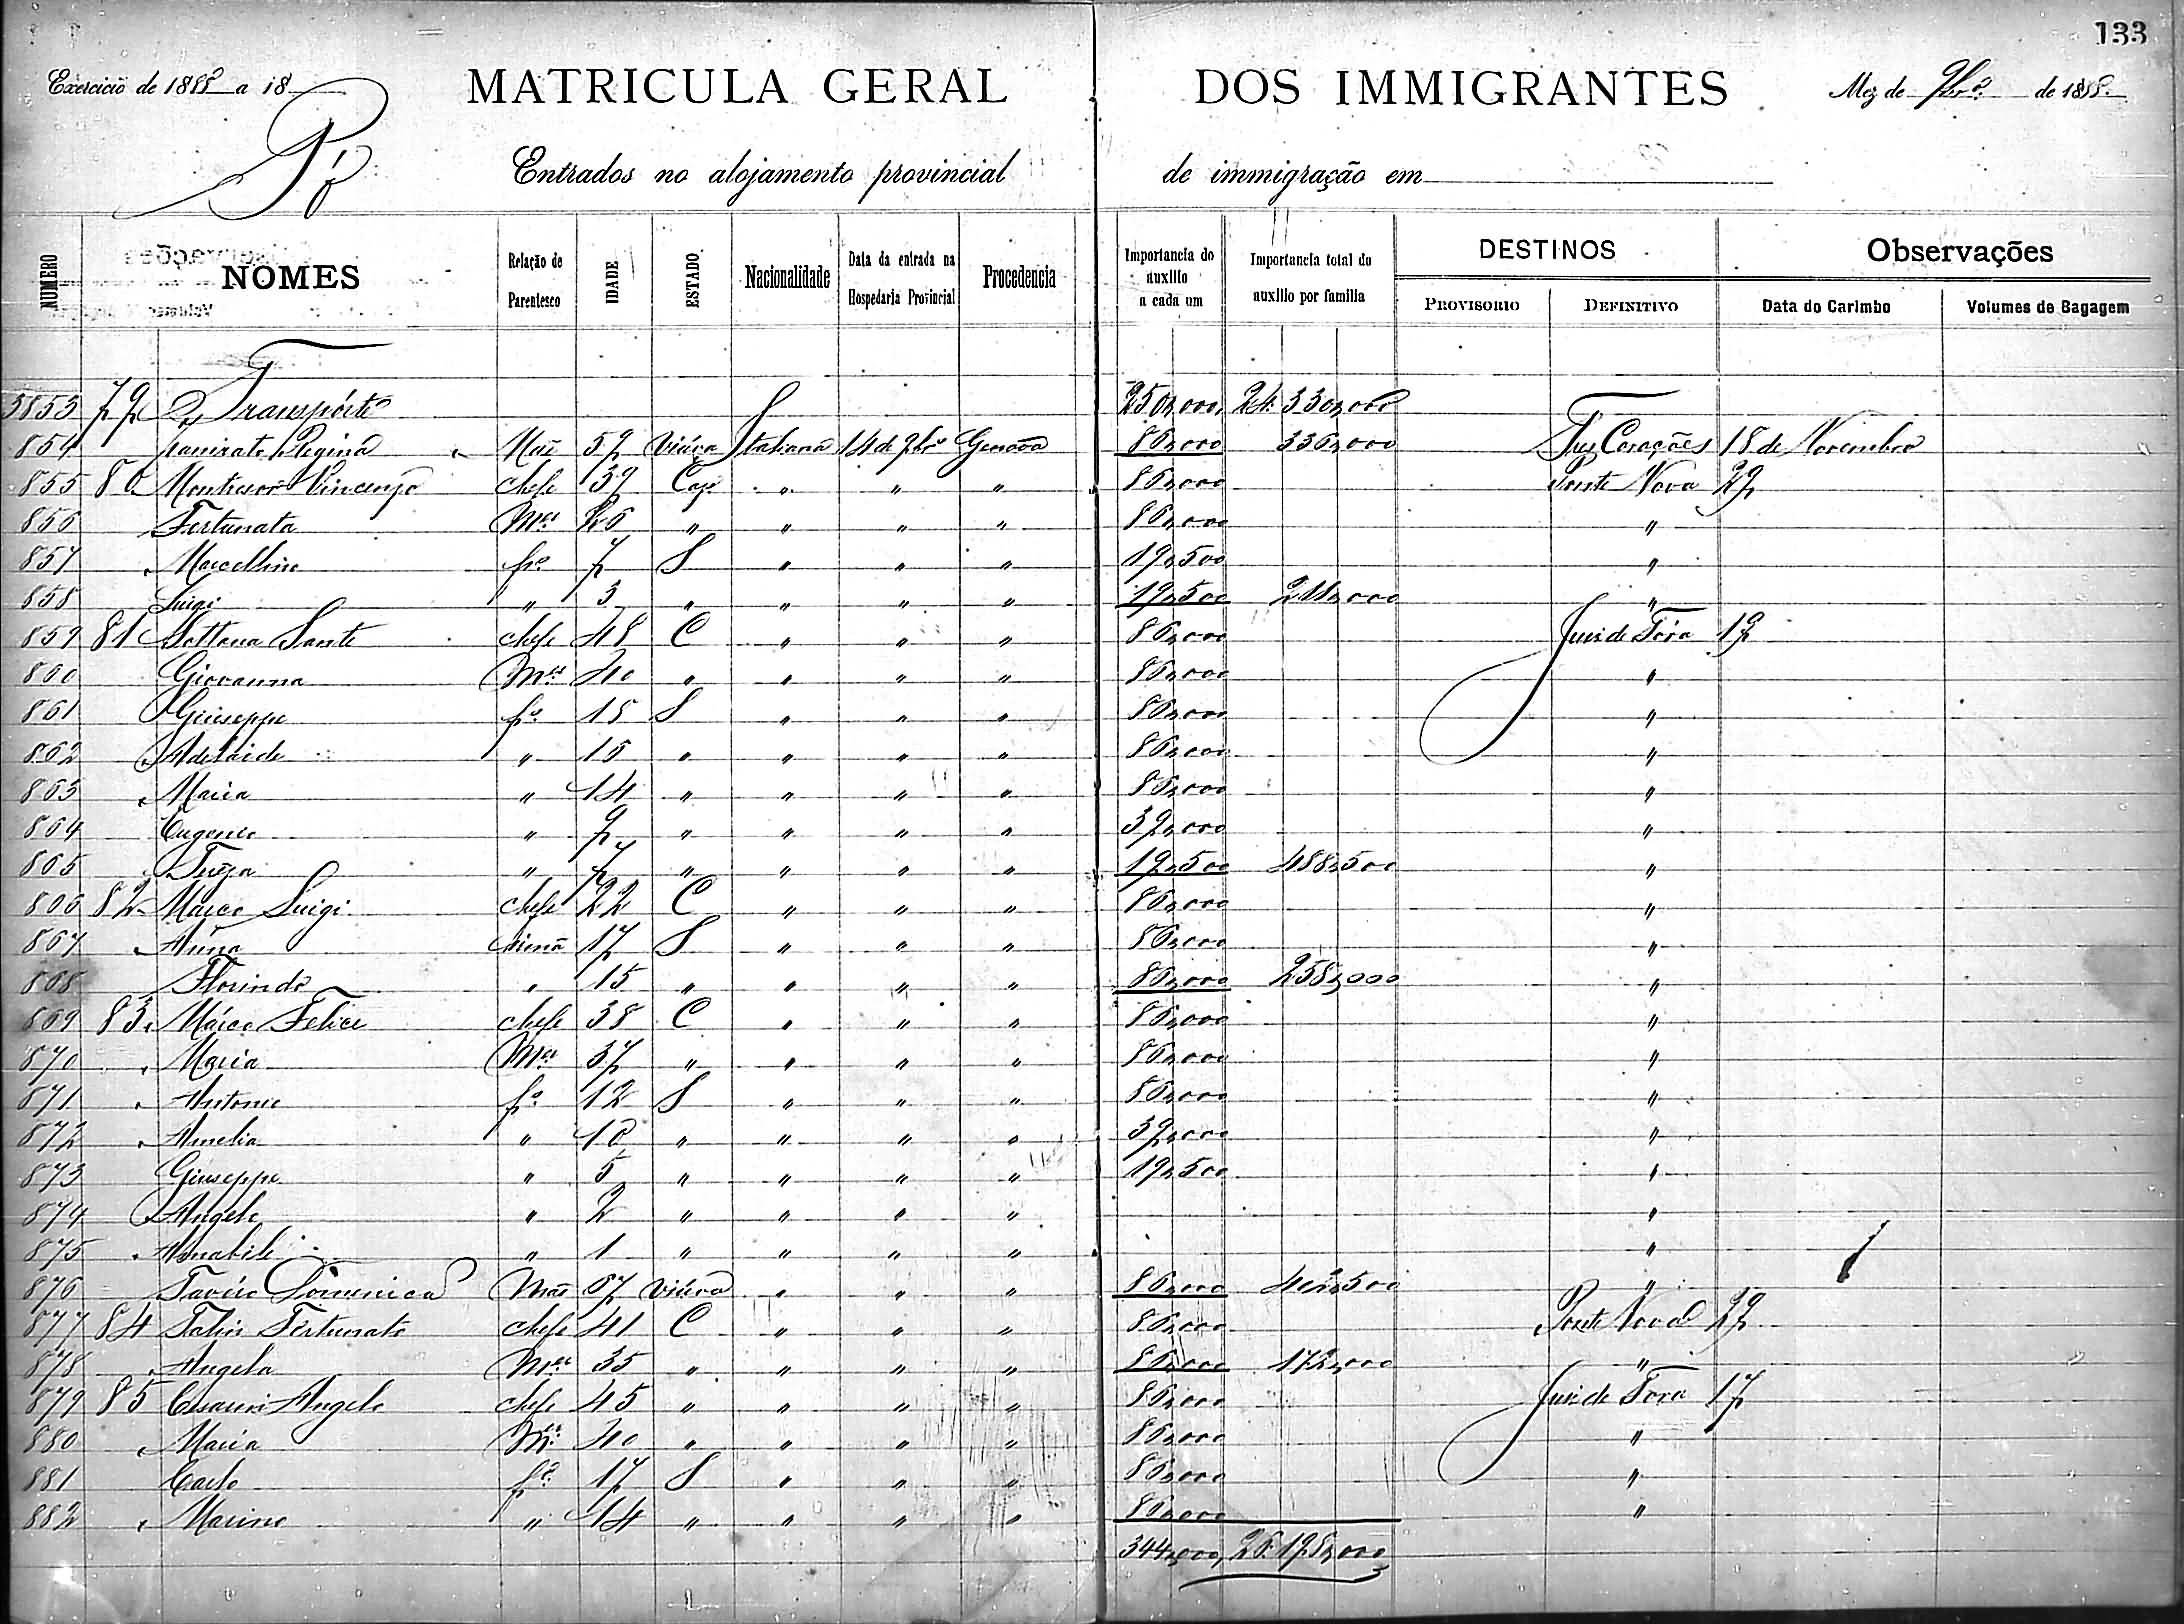 133
Exercicio de 1888 a 18
MATRICULA GERAL DOS IMMIGRANTES
Mez de 9bro de 1888
Entrados no alojamento provincial de immigração em
NUMERO NOMES Relação de Parentesco IDADE ESTADO Nacionalidade Data da entrada na Hospedaria Provincial Procedencia Importancia do auxilio a cada um Importancia total do auxilio por familia DESTINOS PROVISORIO DEFINITIVO Observações Data do Carimbo Volumes de Bagagem
5853 79 Transporte 250,000 24:330,000
854 Regina Mãe 59 Viúva Italiana 14 de 9bro Genova 86,000 336,000 Tres Corações 18 de Novembro
855 80 Vincenzo chefe 39 Caz " " " 86,000 Ponte Nova 29
856 Fortunata Mer 26 " " " " 86,000 "
857 Marcellino fo 7 S " " " 19,500 "
858 Luigi " 3 " " " " 19,500 211,000 "
859 81 Sante chefe 48 C " " " 86,000 Juiz de Fóra 19
860 Giovanna Mer 40 " " " " 86,000 "
861 Giuseppe fo 18 S " " " 86,000 "
862 Adelaide " 16 " " " " 86,000 "
863 Maria " 14 " " " " 86,000 "
864 Eugenio " 9 " " " " 39,000 "
865 " 7 " " " " 19,500 488,500 "
866 82 Marco Luigi chefe 22 C " " " 86,000 "
867 Anna irmã 17 S " " " 86,000 "
868 Florindo " 15 " " " " 86,000 258,000 "
869 83 Marco Felice chefe 38 C " " " 86,000 "
870 Maria Mer 37 " " " " 86,000 "
871 Antonio fo 12 S " " " 86,000 "
872 Amelia " 10 " " " " 39,000 "
873 Giuseppe " 5 " " " " 19,500 "
874 Angelo " 2 " " " " "
875 Amabile " 1 " " " " "
876 Domenica Mãe 67 viúva " " " 86,000 402,500 "
877 84 Fortunato chefe 41 C " " " 86,000 Ponte Nova 29
878 Angela Mer 35 " " " " 86,000 172,000 "
879 85 Angelo chefe 45 " " " " 86,000 Juiz de Fora 17
880 Maria Mer 40 " " " " 86,000 "
881 Carlo fo 17 S " " " 86,000 "
882 Marino " 14 " " " " 86,000 "
344,000 26:198,000